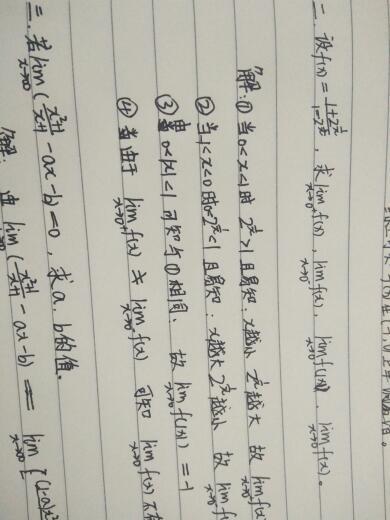 一、设f(x)=\frac{1+2^{\frac{1}{x}}}{1-2^{\frac{1}{x}}}，求\lim_{x→0^+}f(x)，\lim_{x→0^-}f(x)，\lim_{x→0}f(|x|)，\lim_{x→0}f(x)。
解：①当0<x<1时 2^{\frac{1}{x}}>1且易知：x越小 2^{\frac{1}{x}}越大 故\lim_{x→0^+}f(x)
②当-1<x<0时0<2^{\frac{1}{x}}<1且易知：x越大2^{\frac{1}{x}}越小 故\lim_{x→0^-}f
③由0<|x|<1可知与①相同、故\lim_{x→0}f(|x|)=-1
④由于\lim_{x→0^+}f(x)≠\lim_{x→0^-}f(x) 可知\lim_{x→0}f(x)不
二、若\lim_{x→∞}(\frac{x^2+1}{x+1}-ax-b)=0，求a、b的值。
解：由\lim_{x→∞}(\frac{x^2+1}{x+1}-ax-b)=\lim_{x→∞}[(1-a)x